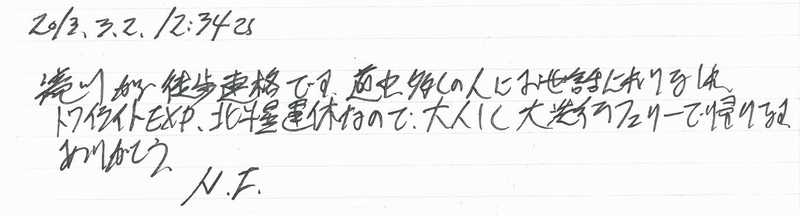 2013.3.2. 12:34
滝川から徒歩連絡です。道中多くの人にお世話になりました
トワイライトEXP、北斗星運休なので、大人しく大洗行フェリーで帰ります
ありがとう
N.I.